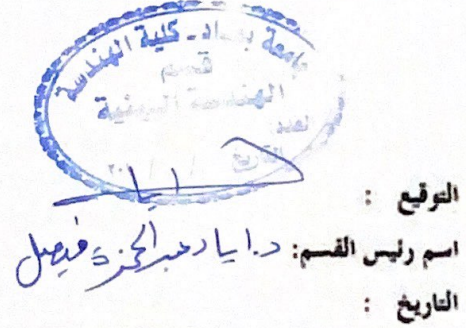 جامعة بغداد - كلية الهندسة
قسم
الهندسة المدنية
العدد:
التاريخ / / ٢٠
التوقيع :
اسم رئيس القسم: د. اياد عبد الحمزة فيصل
التاريخ :